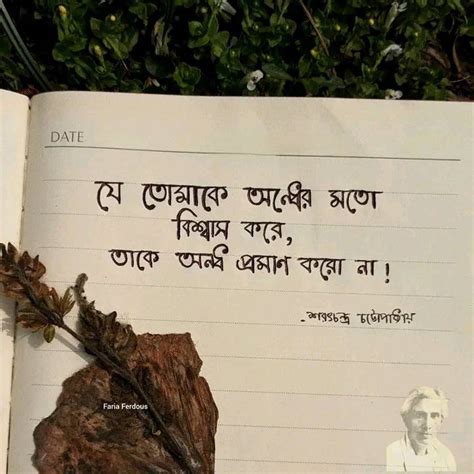 DATE
যে তোমাকে অন্ধের মতো
বিশ্বাস করে,
তাকে অন্ধ প্রমাণ করো না !
- শরৎচন্দ্র চট্টোপাধ্যায়
Faria Ferdous